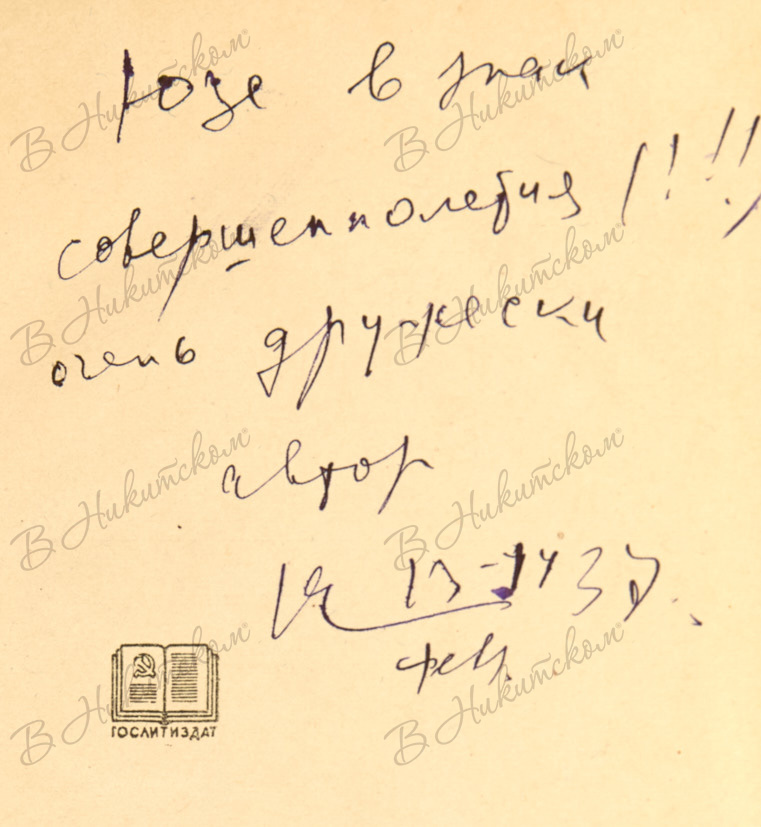 Юзе в знак
совершеннолетия !!!!
очень дружески
автор
13-14 37
фев.
ГОСЛИТИЗДАТ
В Никитском
В Никитском
В Никитском
В Никитском
В Никитском
В Никитском
В Никитском
В Никитском